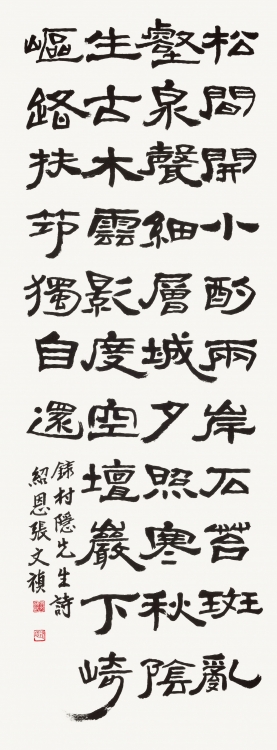 松間開小酌兩岸石苔斑亂
壑泉聲細層城夕照寒秋陰
生古木雲影度空壇巖下崎
嶇路扶筇獨自還
銕村隱先生詩
紹恩張文禎